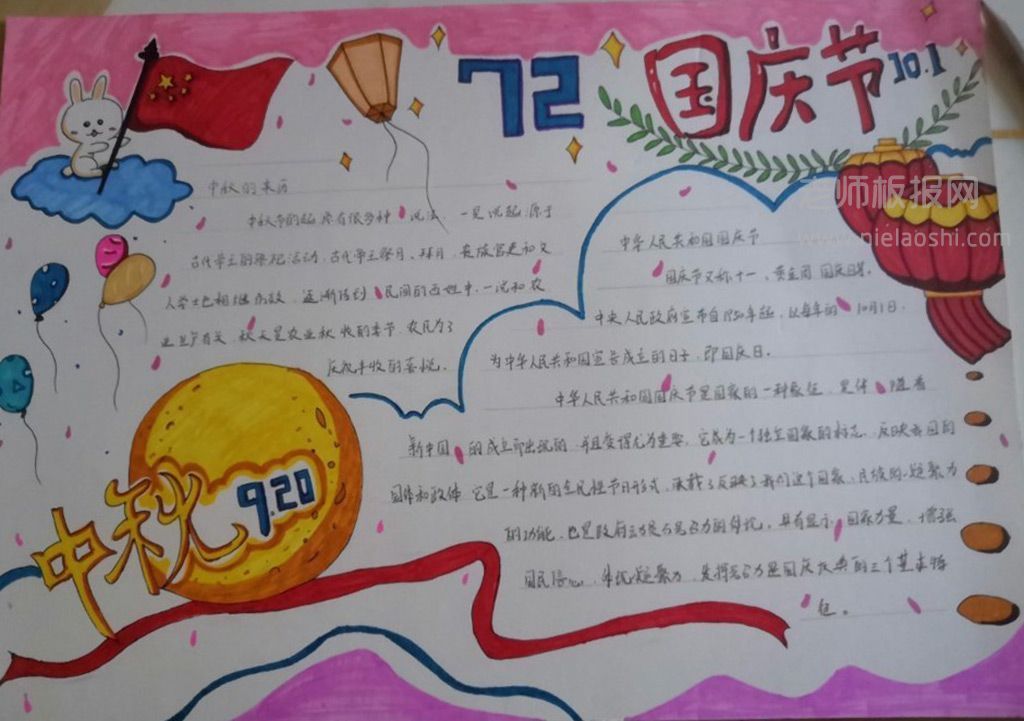 72
国庆节10.1
老师板报网
www.pielaoshi.com
中秋的来历
中秋节的起源有很多种说法,一是说起源于
古代帝王的祭祀活动,古代帝王祭月、拜月,贵族官吏和文
人学士也相继仿效,逐渐传到民间的
一说和农
业生产有关,秋天是农业秋收的季节,农民为了
庆祝丰收的喜悦。
中秋
9.20
中华人民共和国国庆节
国庆节又称十一、黄金周、国庆日等。
中央人民政府宣布自1950年起,以每年的10月1日,
为中华人民共和国宣告成立的日子,即国庆日。
中华人民共和国国庆节是国家的一种象征,是伴随着
新中国的成立而出现的,并且变得尤为重要。它成为一个独立国家的标志,反映我国的
国体和政体。它是一种新的全民性节日形式,承载了反映了我们这个国家,民族的凝聚力
的功能,也是政府动员与号召力的体现。具有显示国家力量,增强
国民信心,体现凝聚力,发挥号召力是国庆庆典的三个基本特
征。